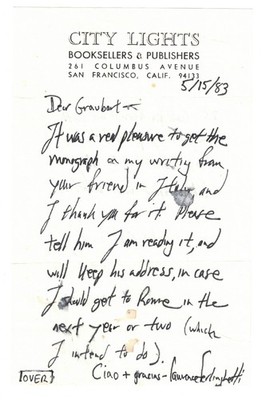 CITY LIGHTS
BOOKSELLERS & PUBLISHERS
261 COLUMBUS AVENUE
SAN FRANCISCO, CALIF. 94133
5/15/83
Dear Graubart —
It was a real pleasure to get the
monograph on my writing from
your friend in Italy and
I thank you for it. Please
tell him I am reading it, and
will keep his address, in case
I should get to Rome in the
next year or two (which
I intend to do).
Ciao + gracias - Lawrence Ferlinghetti
[OVER]